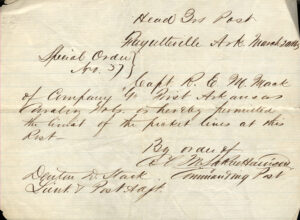 Head Qrs Post
Fayetteville Ark March 20th
Special Order
No. 57
Capt R. E. M. Mack
of Company "G" First Arkansas
Cavalry Vols is hereby permitted
the limit of the picket lines at this
Post—
By order of
M. LaRue Harrison
Commanding Post
Denton D. Stark
Lieut & Post Adjt.